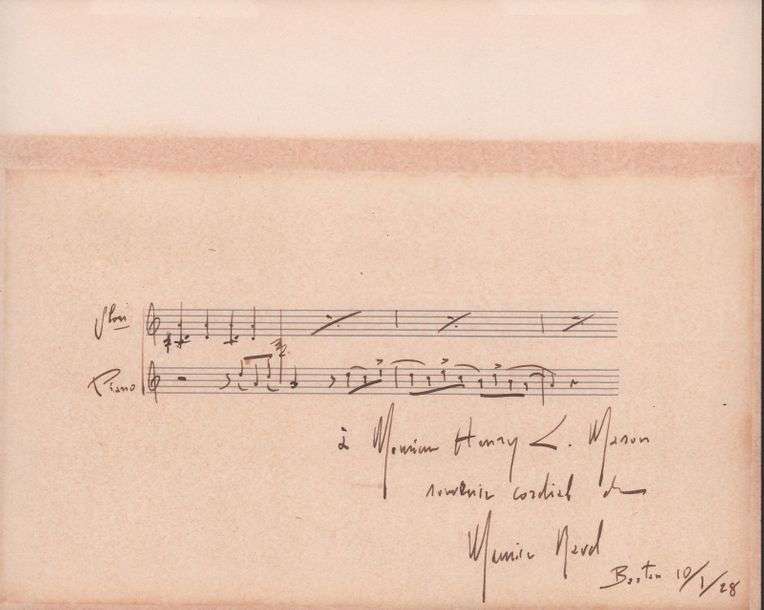 Von
Piano
à Monsieur Henry L. Mason
souvenir cordial de
Maurice Ravel
Boston 10/1/28